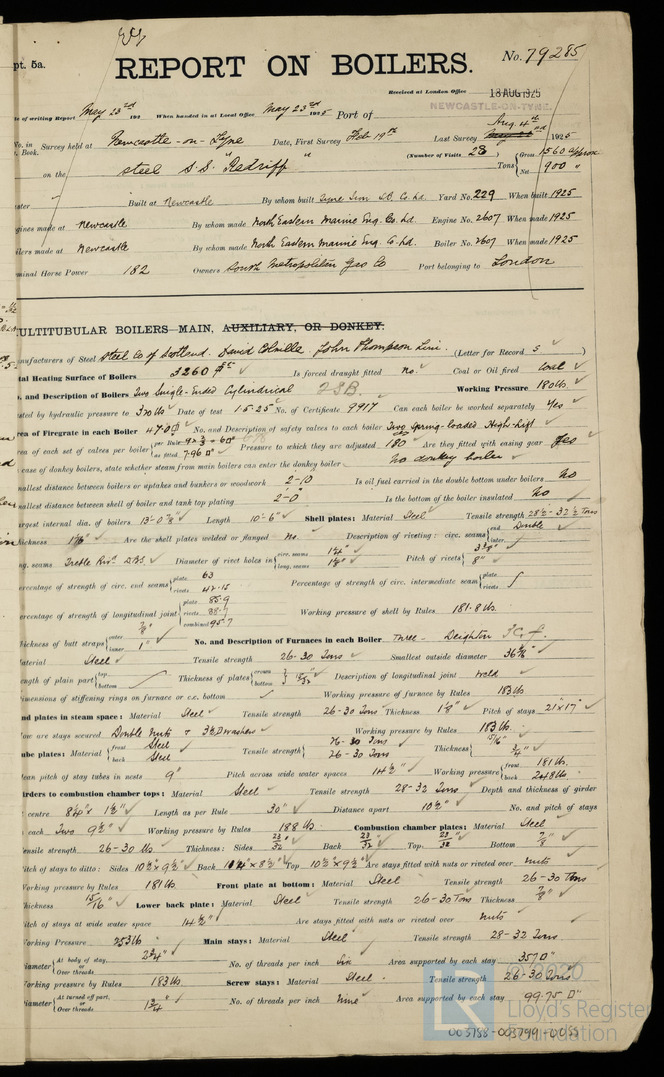 pt. 5a.
REPORT ON BOILERS.
No. 79285
Received at London Office 18 AUG 1925
NEWCASTLE-ON-TYNE.
te of writing Report May 23rd 192 When handed in at Local Office May 23rd 1925 Port of
No. in Survey held at Newcastle-on-Tyne Date, First Survey Feb 19th Last Survey Aug. 4th 1925
Book.
(Number of Visits 28
on the steel S.S. Redriff
Tons { Gross 1560 approx.
Net 900 "
ster Built at Newcastle By whom built Tyne Iron S.B. Co. Ld. Yard No. 229 When built 1925
gines made at Newcastle By whom made North Eastern Marine Eng. Co. Ld. Engine No. 2607 When made 1925
ilers made at Newcastle By whom made North Eastern Marine Eng. Co. Ld. Boiler No. 2607 When made 1925
minal Horse Power 182 Owners South Metropolitan Gas Co Port belonging to London
ULTITUBULAR BOILERS MAIN, AUXILIARY, OR DONKEY.
nufacturers of Steel Steel Co of Scotland. David Colville. John Thompson (Letter for Record S
tal Heating Surface of Boilers 3260 Is forced draught fitted No. Coal or Oil fired Coal
. and Description of Boilers Two Single-Ended Cylindrical 2SB. Working Pressure 180 lbs
sted by hydraulic pressure to 320 lbs Date of test 1-5-25 No. of Certificate 9917 Can each boiler be worked separately Yes
rea of Firegrate in each Boiler No. and Description of safety valves to each boiler Two Spring-loaded High-lift
rea of each set of valves per boiler { per Rule
as fitted 7.96 □" Pressure to which they are adjusted 180 Are they fitted with easing gear Yes
case of donkey boilers, state whether steam from main boilers can enter the donkey boiler No donkey boiler
mallest distance between boilers or uptakes and bunkers or woodwork 2-10 Is oil fuel carried in the double bottom under boilers No
mallest distance between shell of boiler and tank top plating 2-0" Is the bottom of the boiler insulated No
argest internal dia. of boilers Length 10'-6" Shell plates: Material Steel Tensile strength 28½-32½ Tons
hickness Are the shell plates welded or flanged No. Description of riveting: circ. seams { end Double
inter.
ng. seams Treble Riv. D.B.S. Diameter of rivet holes in { circ. seams 1¼"
long. seams Pitch of rivets { 8"
ercentage of strength of circ. end seams { plate 63
rivets 42.15 Percentage of strength of circ. intermediate seam { plate
rivets
ercentage of strength of longitudinal joint { plate 85.9
rivets
combined 95.7 Working pressure of shell by Rules 181.8 lbs.
hickness of butt straps { outer 7/8"
inner 1" No. and Description of Furnaces in each Boiler Three - Deighton
aterial Steel Tensile strength 26-30 Tons Smallest outside diameter
ength of plain part { top
bottom Thickness of plates { crown
bottom } Description of longitudinal joint Weld
imensions of stiffening rings on furnace or c.c. bottom Working pressure of furnace by Rules 183 lbs
nd plates in steam space: Material Steel Tensile strength 26-30 Tons Thickness Pitch of stays 21" x 17"
ow are stays secured Double nuts & Washers Working pressure by Rules 183 lbs.
ube plates: Material { front Steel
back Steel Tensile strength { 26-30 Tons
26-30 Tons Thickness { 15/16"
3/4"
ean pitch of stay tubes in nests 9" Pitch across wide water spaces 14½" Working pressure { front 181 lbs
back 248 lbs
irders to combustion chamber tops: Material Steel Tensile strength 28-32 Tons Depth and thickness of girder
centre Length as per Rule 30" Distance apart 10½" No. and pitch of stays
each Two 9½" Working pressure by Rules 188 lbs Combustion chamber plates: Material Steel
ensile strength 26-30 lbs Thickness: Sides 23/32 Back 23/32 Top 23/32 Bottom 7/8"
itch of stays to ditto: Sides 10½" x 9½" Back Top 10½" x 9½" Are stays fitted with nuts or riveted over nuts
orking pressure by Rules 181 lbs Front plate at bottom: Material Steel Tensile strength 26-30 Tons
hickness 15/16" Lower back plate: Material Steel Tensile strength 26-30 Tons Thickness 7/8"
itch of stays at wide water space 14½" Are stays fitted with nuts or riveted over nuts
orking Pressure 253 lbs Main stays: Material Steel Tensile strength 28-32 Tons
iameter { At body of stay, 2¾"
or
Over threads No. of threads per inch Six Area supported by each stay 357 □"
orking pressure by Rules 183 lbs Screw stays: Material Steel Tensile strength 26-30 Tons
iameter { At turned off part,
or
Over threads 1¾" No. of threads per inch Nine Area supported by each stay 99.75 □"
© 2020
LR Lloyd's Register
Foundation
003788-003799-0055